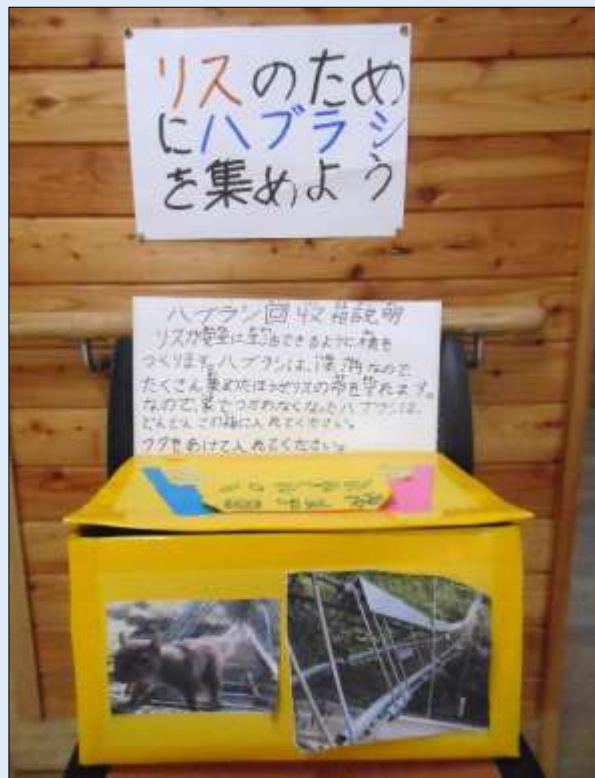 リスのため
にハブラシ
を集めよう
ハブラシ回収箱説明
リスが安全に生活できるように橋を
つくります。ハブラシは、なので
たくさん集めたほうがリスの命を守れます。
なので、家でつかわなくなったハブラシは、
どんどんこの箱に入れてください。
フタをあけて入れてください。